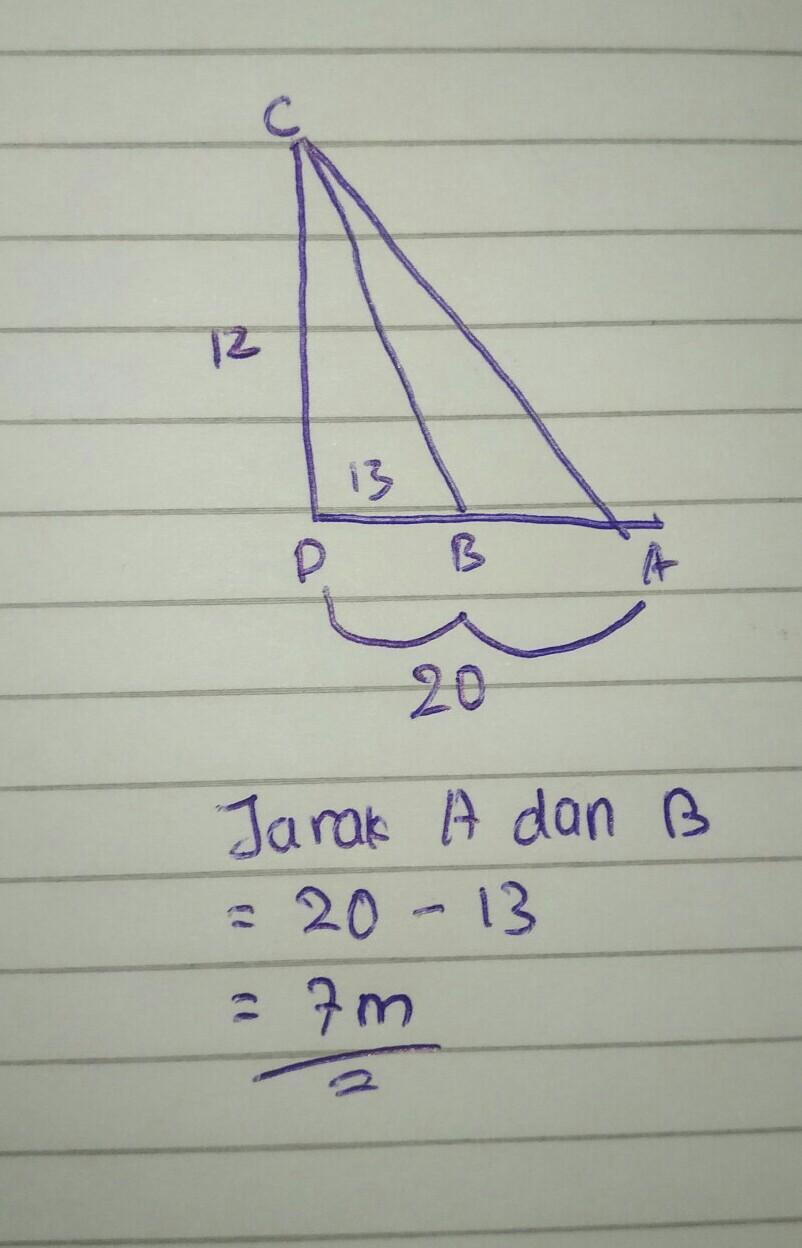 C
12
13
D B A
20
Jarak A dan B
= 20 - 13
= 7m